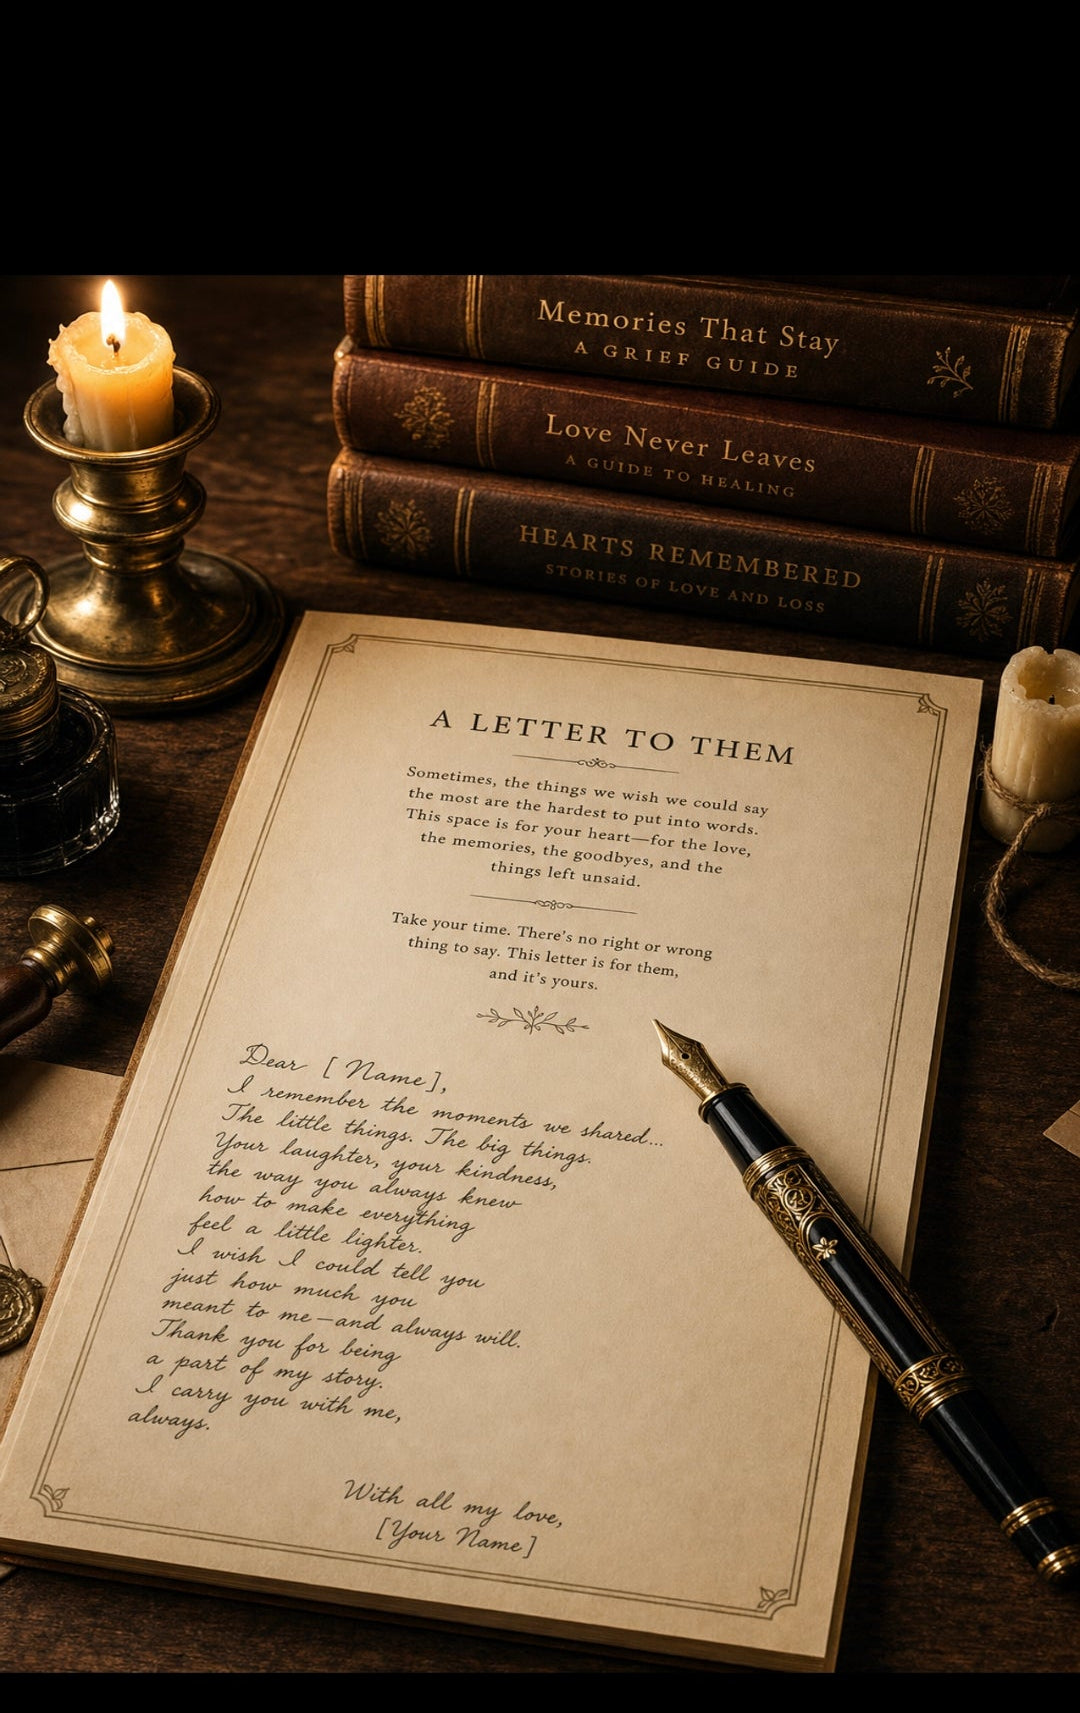 Memories That Stay
A GRIEF GUIDE
Love Never Leaves
A GUIDE TO HEALING
HEARTS REMEMBERED
STORIES OF LOVE AND LOSS
A LETTER TO THEM
Sometimes, the things we wish we could say
the most are the hardest to put into words.
This space is for your heart—for the love,
the memories, the goodbyes, and the
things left unsaid.
Take your time. There's no right or wrong
thing to say. This letter is for them,
and it's yours.
Dear [ Name ],
I remember the moments we shared...
The little things. The big things.
Your laughter, your kindness,
the way you always knew
how to make everything
feel a little lighter.
I wish I could tell you
just how much you
meant to me—and always will.
Thank you for being
a part of my story.
I carry you with me,
always.
With all my love,
[Your Name]